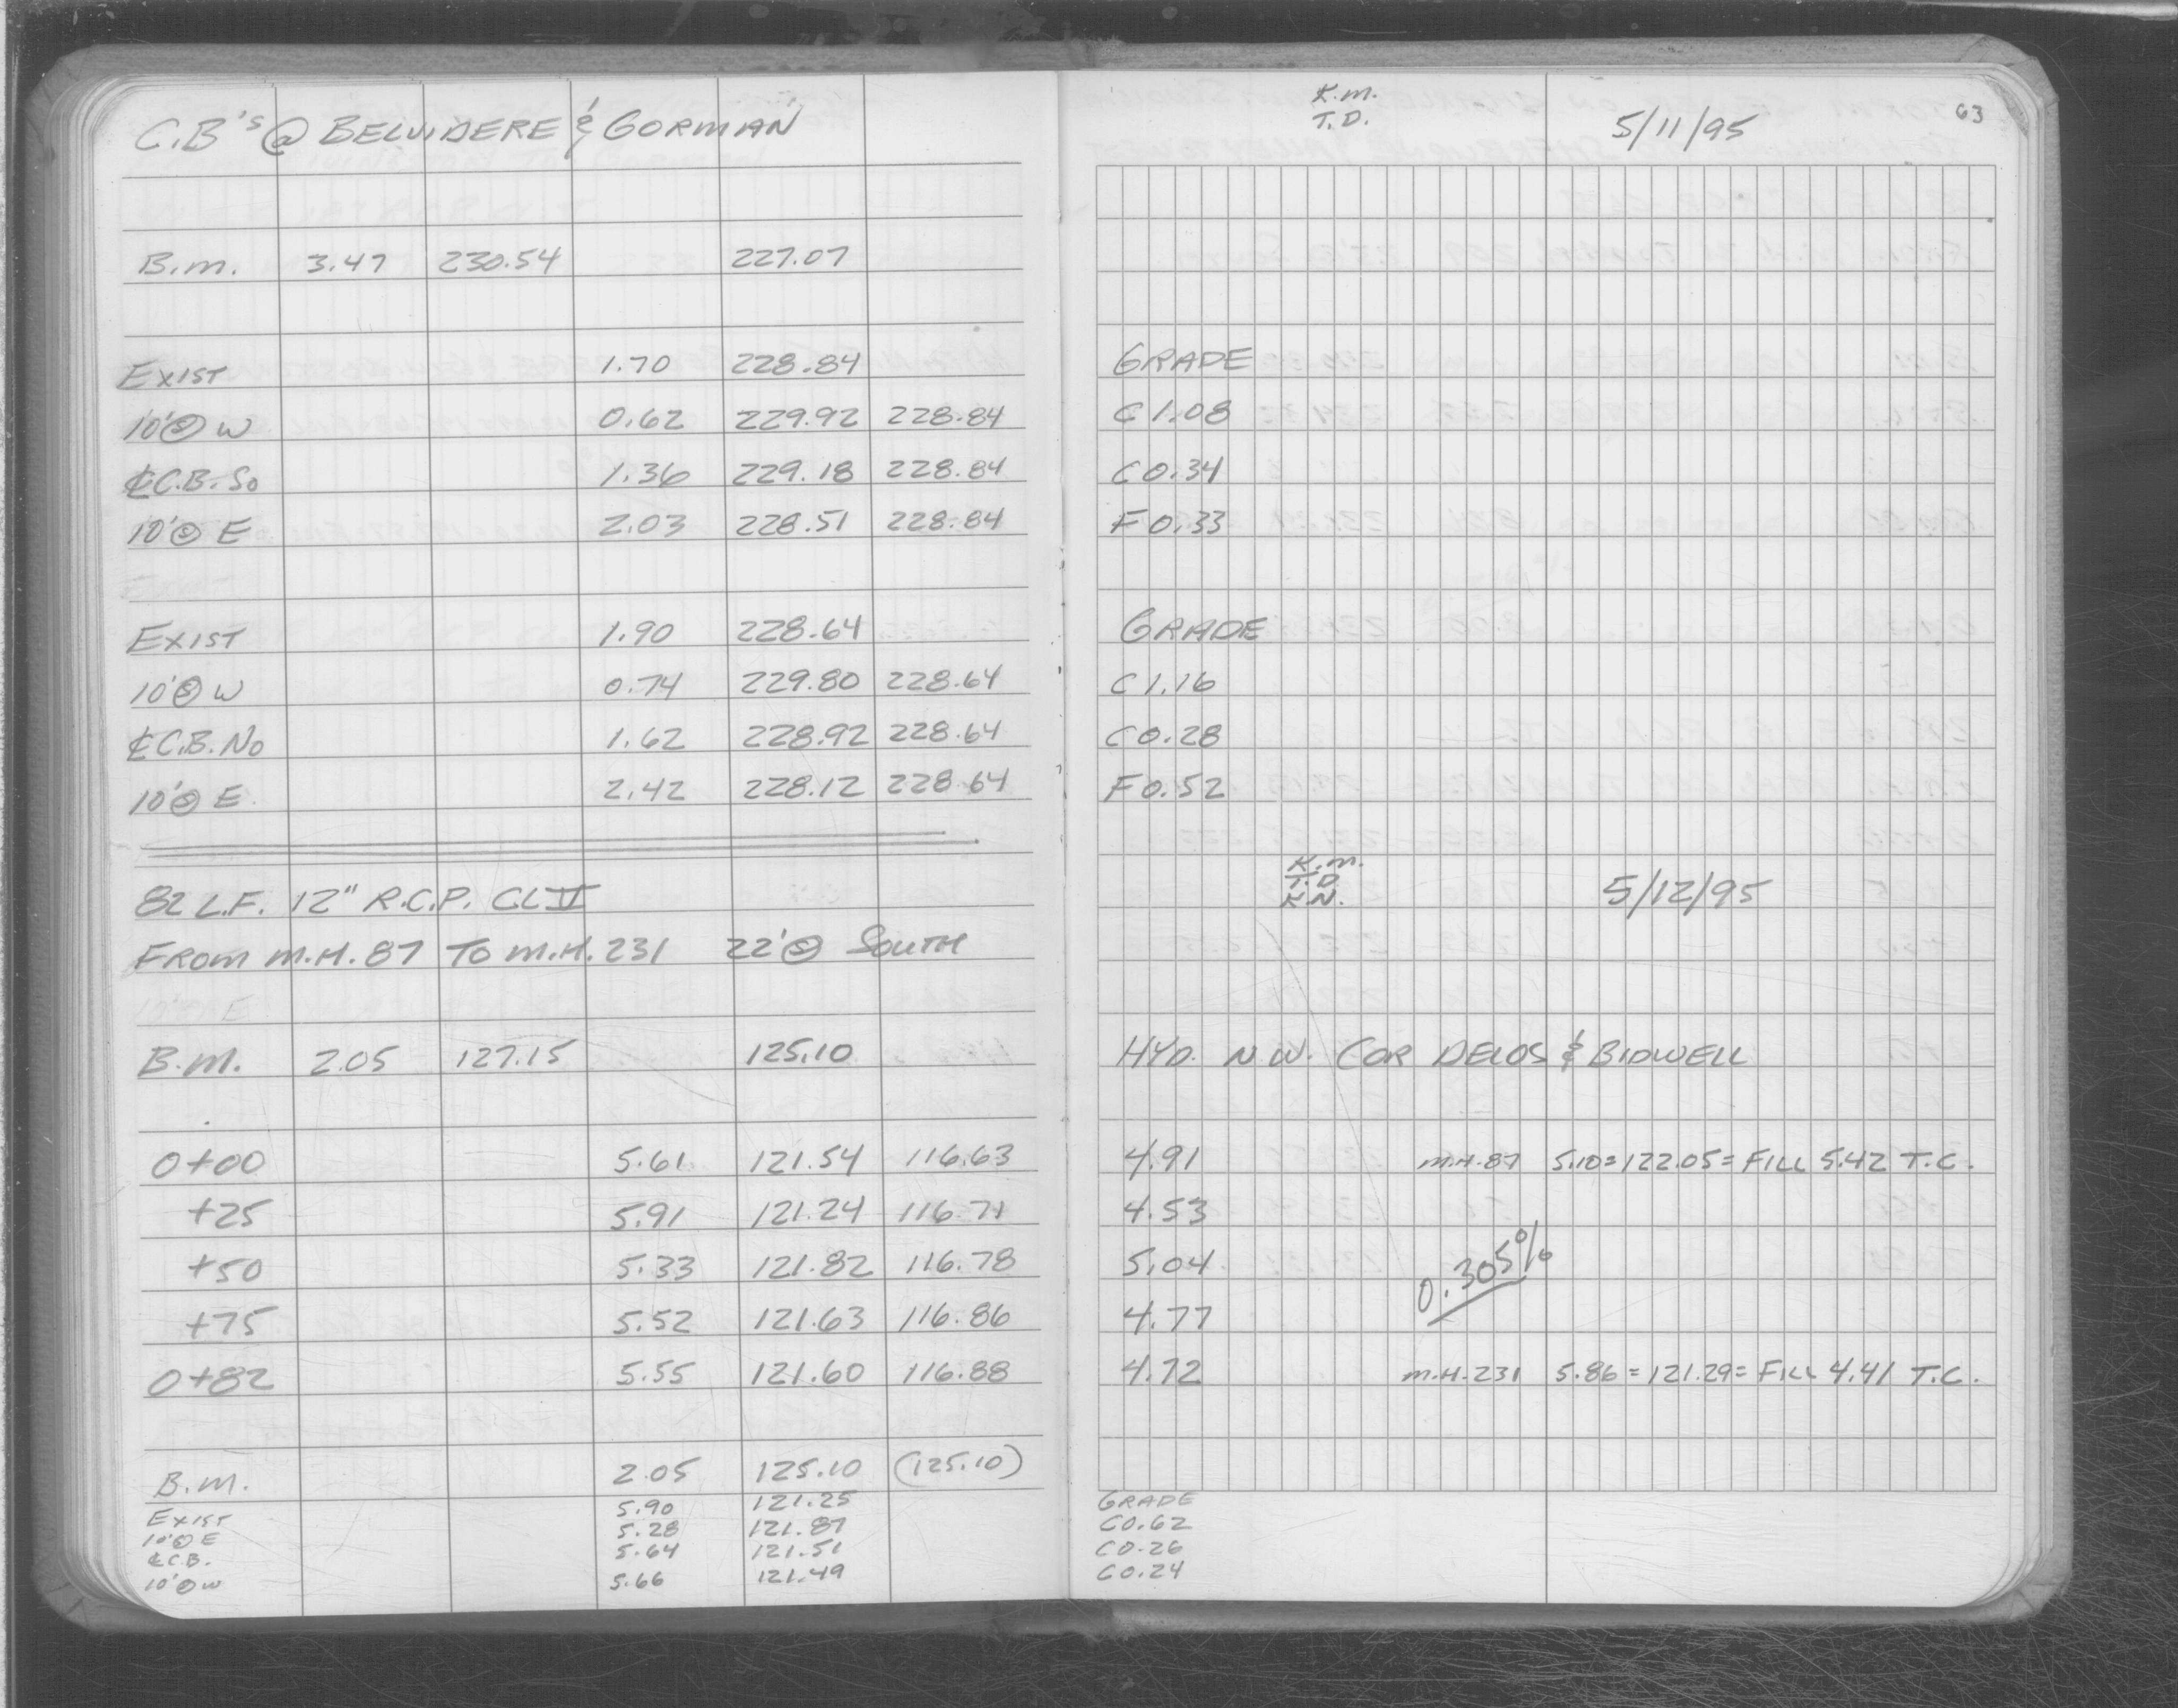 C.B's @ BELVIDERE & GORMAN
B.M. 3.47 230.54 227.07
EXIST 1.70 228.84
10'Ⓢ W 0.62 229.92 228.84
℄ C.B. So 1.36 229.18 228.84
10'Ⓢ E 2.03 228.51 228.84
EXIST 1.90 228.64
10'Ⓢ W 0.74 229.80 228.64
℄ C.B. No 1.62 228.92 228.64
10'Ⓢ E. 2.42 228.12 228.64
82 L.F. 12" R.C.P. CL V
FROM M.H. 87 TO M.H. 231 22'Ⓢ SOUTH
B.M. 2.05 127.15 125.10
0+00 5.61 121.54 116.63
+25 5.91 121.24 116.71
+50 5.33 121.82 116.78
+75 5.52 121.63 116.86
0+82 5.55 121.60 116.88
B.M. 2.05 125.10 (125.10)
EXIST 5.90 121.25
10'Ⓢ E 5.28 121.87
℄ C.B. 5.64 121.51
10'Ⓢ W 5.66 121.49
K.M.
T.D.
5/11/95
63
GRADE
C 1.08
C 0.34
F 0.33
GRADE
C 1.16
C 0.28
F 0.52
K.M.
T.D
K.N.
5/12/95
HYD. N W. COR DELOS & BIDWELL
4.91 M.H. 87 5.10=122.05= FILL 5.42 T.C.
4.53
5.04 0.305%
4.77
4.72 M.H. 231 5.86=121.29= FILL 4.41 T.C.
GRADE
C0.62
C0.26
C0.24